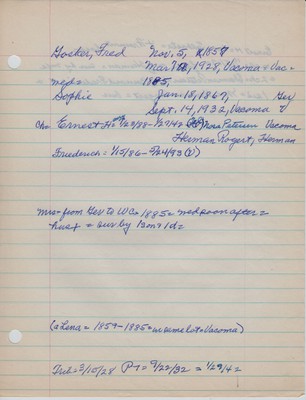 Gosker, Fred Nov. 5, 1857
Mar 7, 1928, Vacoma = Vac =
med = 1885,
Sophie Jan-18, 1867, Ger
Sept. 14, 1932, Vacoma V
Ch= Ernest H= 9/29/88- 1/27/42 Nora Petersen Vacoma
Herman Rogert, Herman
Friederich= 1/15/86- 9/24/93 (V)
Mrs= from Ger to WC= 1885= med soon after=
hus + = sur by 1 son 1 d=
(= Lena = 1859-1885= in same lot= Vacoma)
Trib= 3/15/28 P-T= 9/22/32 = 1/29/42